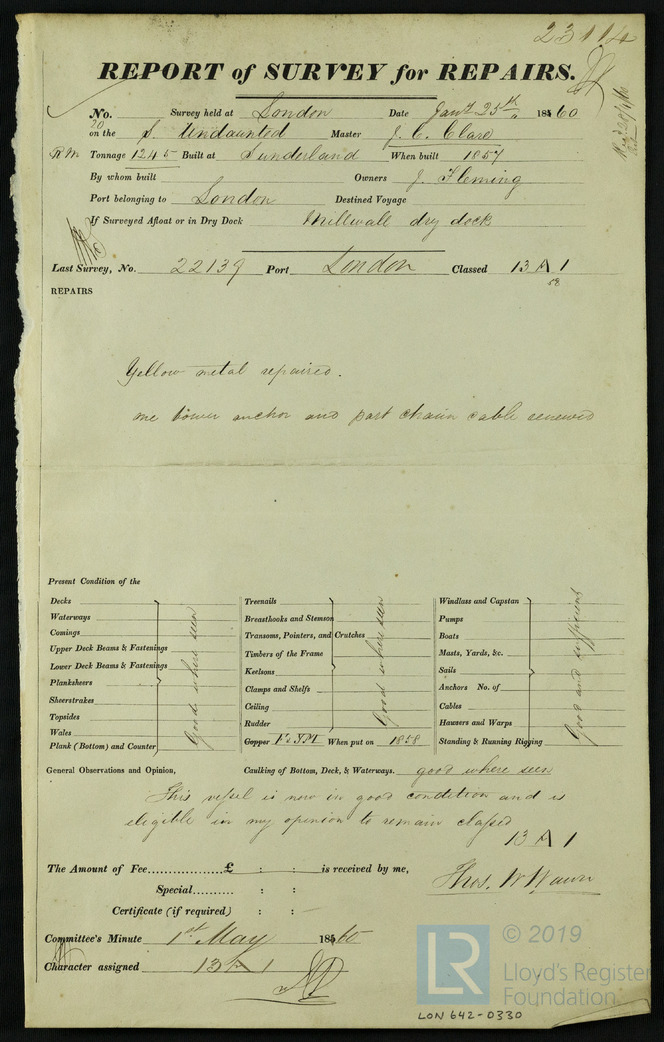 23114
REPORT of SURVEY for REPAIRS.
No. Survey held at London Date Jany 25th 1860
20
on the S. Undaunted Master J. C. Clare
RM Tonnage 1245 Built at Sunderland When built 1857
By whom built Owners J. Fleming
Port belonging to London Destined Voyage
If Surveyed Afloat or in Dry Dock Millwall dry dock
Last Survey, No. 22139 Port London Classed 13 A 1
58
REPAIRS
Yellow metal repaired.
one bower anchor and part chain cable renewed
Present Condition of the
Decks
Waterways
Comings
Upper Deck Beams & Fastenings
Lower Deck Beams & Fastenings
Planksheers
Sheerstrakes
Topsides
Wales
Plank (Bottom) and Counter
Good where seen
Treenails
Breasthooks and Stemson
Transoms, Pointers, and Crutches
Timbers of the Frame
Keelsons
Clamps and Shelfs
Ceiling
Rudder
Good where seen
Copper F&YM When put on 1858
Windlass and Capstan
Pumps
Boats
Masts, Yards, &c.
Sails
Anchors No. of
Cables
Hawsers and Warps
Standing & Running Rigging
Good and sufficient
General Observations and Opinion, Caulking of Bottom, Deck, & Waterways. good where seen
This vessel is now in good condition and is
eligible in my opinion to remain classed
13 A 1
The Amount of Fee..................£ : : is received by me,
Special.......... : :
Thos. W Wawn
Certificate (if required) : : —
Committee's Minute 1st May 1860
Character assigned 13 A 1
LR
© 2019
Lloyd's Register
Foundation
LON 642-0330